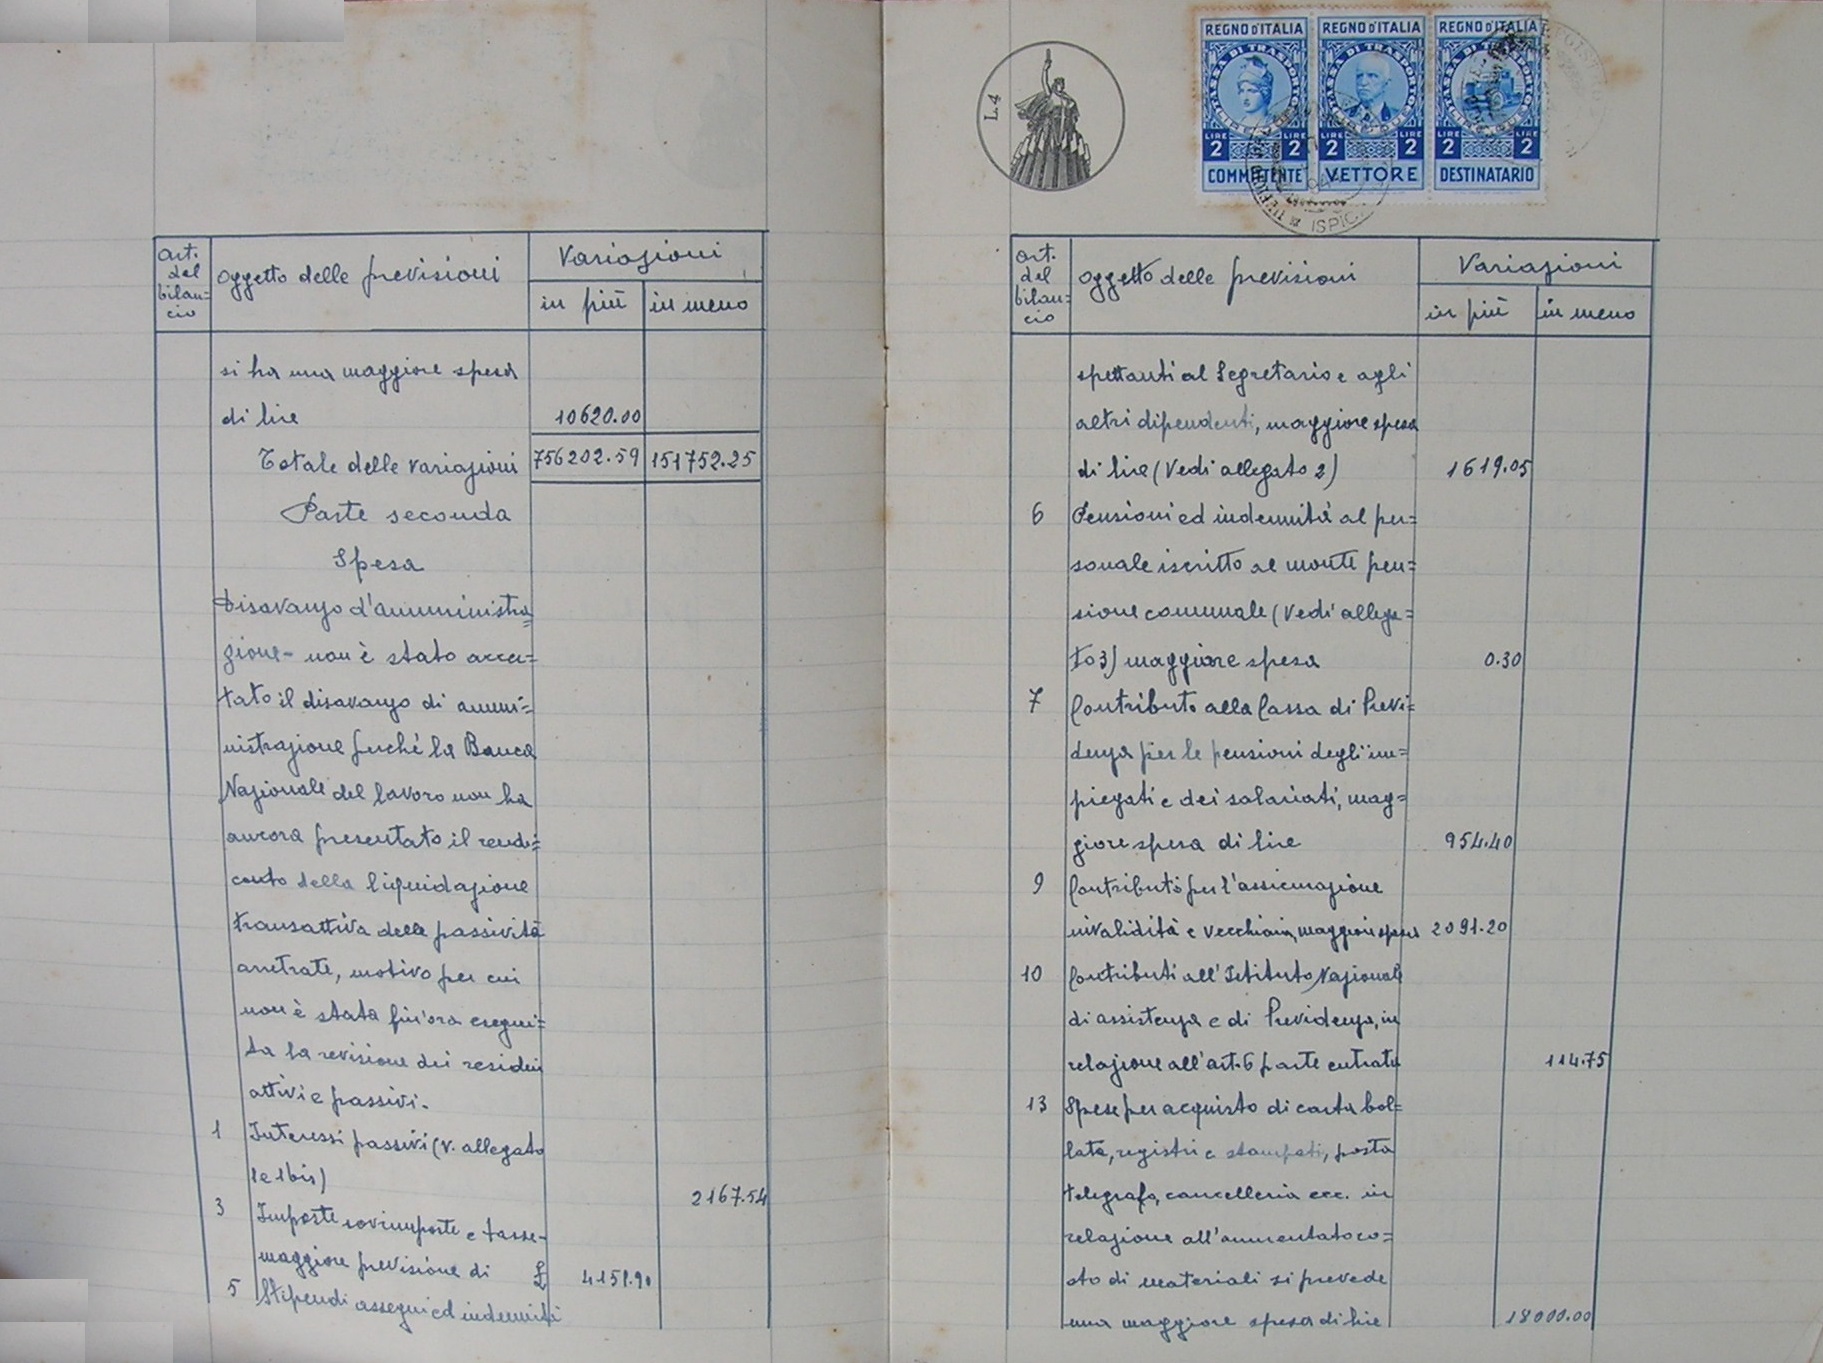 Art.
del
bilan=
cio
Oggetto delle previsioni
Variazioni
in più
in meno
si ha una maggiore spesa
di lire 10620.00
Totale delle variazioni 756202.59 151752.25
Parte seconda
Spesa
Disavanzo d'amministra=
zione - non è stato accer=
tato il disavanzo di ammi=
nistrazione perchè la Banca
Nazionale del lavoro non ha
ancora presentato il rendi=
conto della liquidazione
transattiva delle passività
arretrate, motivo per cui
non è stata fin'ora esegui=
ta la revisione dei residui
attivi e passivi.
1 Interessi passivi (v. allegato
1 e 1bis) 2167.54
3 Imposte sovrimposte e tasse-
maggiore previsione di £ 4151.90
5 Stipendi assegni ed indennità
L.4
REGNO D'ITALIA
TASSA DI TRASPORTO
LIRE 2 LIRE 2
COMMITTENTE
REGNO D'ITALIA
TASSA DI TRASPORTO
LIRE 2 LIRE 2
VETTORE
REGNO D'ITALIA
TASSA DI TRASPORTO
LIRE 2 LIRE 2
DESTINATARIO
ISPIC
Art.
del
bilan=
cio
Oggetto delle previsioni
Variazioni
in più
in meno
spettanti al Segretario e agli
altri dipendenti, maggiore spesa
di lire (Vedi allegato 2) 1619.05
6 Pensioni ed indennità al per=
sonale iscritto al monte pen=
sione comunale (Vedi allega=
to 3) maggiore spesa 0.30
7 Contributo alla Cassa di Previ=
denza per le pensioni degli im=
piegati e dei salariati, mag=
giore spesa di lire 954.40
9 Contributo per l'assicurazione
invalidità e vecchiaia, maggiore spesa 2091.20
10 Contributi all'Istituto Nazionale
di assistenza e di Previdenza, in
relazione all'art. 6 parte entrata 114.75
13 Spese per acquisto di carta bol=
lata, registri e stampati, posta
telegrafo, cancelleria ecc. in
relazione all'aumentato co=
sto di materiali si prevede
una maggiore spesa di lire 18000.00